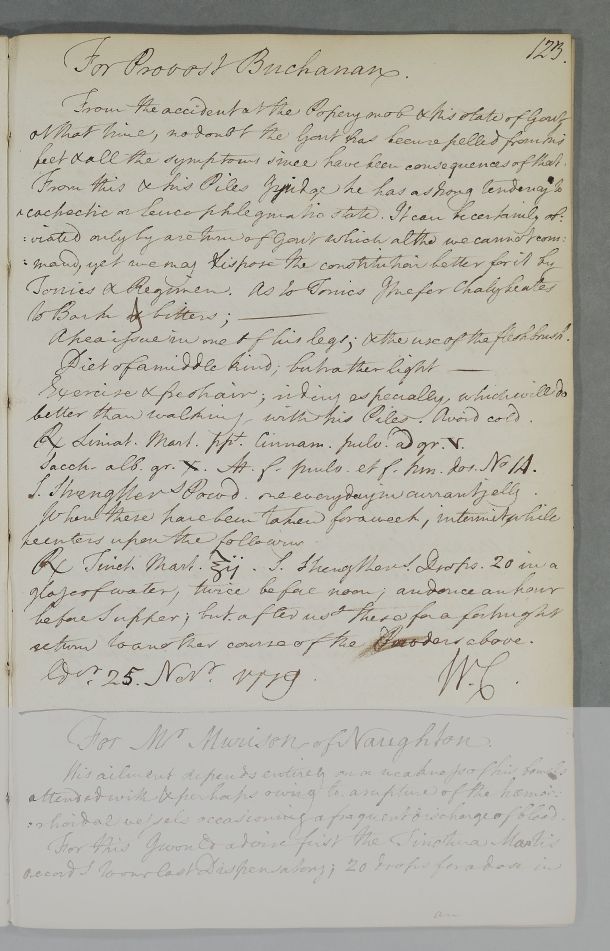 123.
For Provost Buchanan.
From the accident at the Popery mob & his state of Gout
at that time, no doubt the Gout has been repelled from his
feet & all the symptoms since have been consequences of that.
From this & his Piles I judge he has a strong tendency to
cachectic or leucophlegmatic state. It can be certainly ob:
:viated only by a return of Gout which altho we cannot com:
:mand, yet we may dispose the constitution better for it by
Tonics & Regimen. As to Tonics I prefer Chalybeates
to Bark & bitters;
A pea issue in one of his legs; & the use of the flesh brush.
Diet of a middle kind; but rather light
Exercise & fresh air; riding especially, which will do
better than walking with his Piles. Avoid cold.
℞ Limat. Mart. ppt. Cinnam. pulv. a̅ gr. v.
Sacch. alb. gr. x. M. f. pulv. et f. hm. dos. No 14.
S. Strengthens Powd. one every day in currant jelly.
When these have been taken for a week, intermit while
he enters upon the following
℞ Tinct. Mart. ʒij. S. Strengthens. Drops. 20 in a
glass of water, twice before noon; and once an hour
before Supper; but after usg these for a fortnight
return to another course of the Powders above.
Edr. 25. Novr. 1779.
W.C.
For Mr Murison of Naughton.
His ailment depends entirely on a weakness of his bowels
attended with & perhaps owing to a rupture of the hæmor:
:rhoidal vessels occasioning a frequent discharge of blood.
For this I would advise first the Tinctura Martis
accordg to our last Dispensatory; 20 drops for a dose in
an